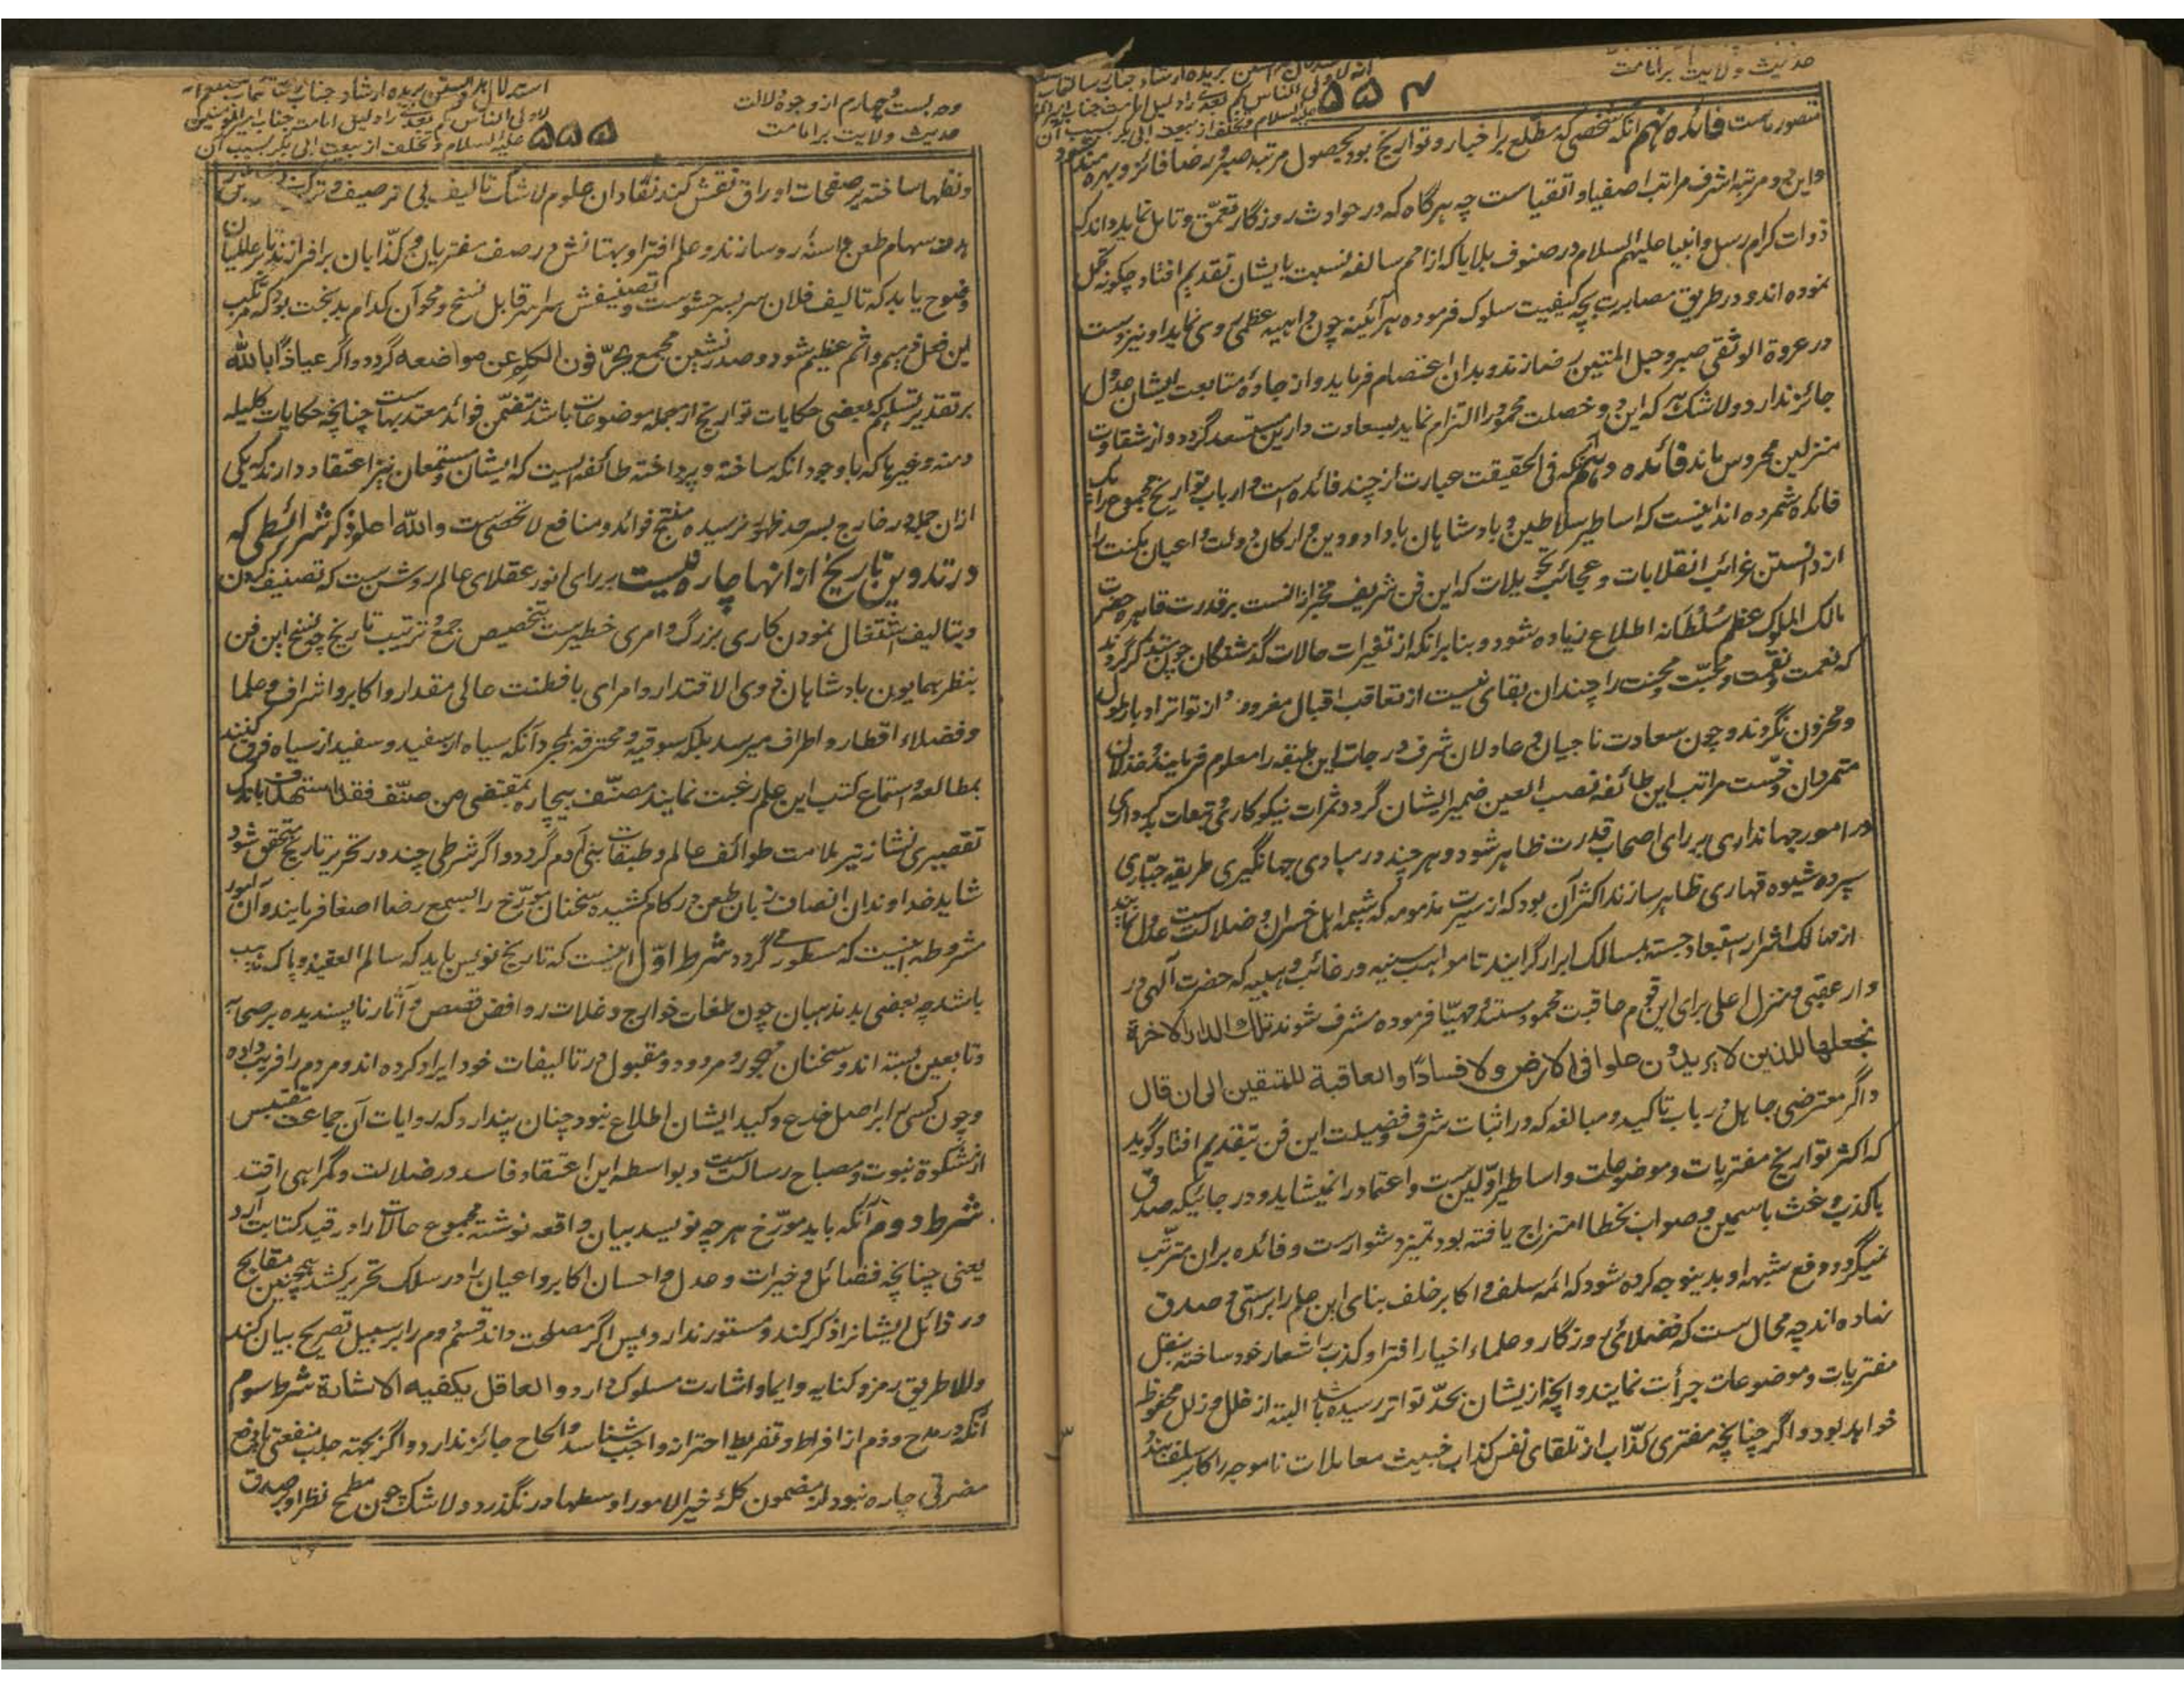 حدیث ولایت برامامت
۵۵۴
متصور ماست فائده نهم آنکه شخصی که مطلع بر اخبار و تواریخ بود بحصول مرتبه صبر و رضا فائز و بهره مند شود
و این دو مرتبه اشرف مراتب اصفیا و اتقیاست چه هرگاه که در حوادث روزگار تعمق و تامل نماید داند که
ذوات کرام رسل و انبیا علیهم السلام در صنوف بلایا که از امم سالفه نسبت بایشان تقدیم افتاد چگونه تحمل
نموده اند و در طریق مصابرت بچه کیفیت سلوک فرموده هر آئینه چون داهیه عظمی روی نماید او نیز دست
در عروة الوثقی صبر و حبل المتین رضا زند و بدان اعتصام فرماید و از جادهٔ متابعت ایشان عدول
جائز ندارد و لا شک هر که این دو خصلت محمود را التزام نماید بسعادت دارین مستسعد گردد و از شقاوت
منزلین محروس ماند فائده دهم آنکه فی الحقیقت عبارت از چند فائده است و ارباب تواریخ مجموع را یک
فائده شمرده اند اینست که اساطیر سلاطین و بادشاهان با داد و دین و ارکان دولت و اعیان مکنت را
از دانستن غرائب انقلابات و عجائب تحویلات که این فن شریف مخبر از انست بر قدرت قاهره حضرت
مالک الملوک عظم سُلطَانه اطلاع زیاده شود و بنا برانکه از تغیرات حالات گذشتگان چون متذکر گردند
که نعمت و نقمت و محبّت و محنت را چندان بقای نیست از تعاقب اقبال مغرور و از تواتر ادبار ملول
و محزون نگردند و چون سعادت ناجیان و عادلان شرف درجات این طبقه را معلوم فرمایند و خذلان
متمردان و خسّت مراتب این طائفه نصب العین ضمیر ایشان گردد ثمرات نیکوکاری و تبعات بدکرداری
در امور جهانداری بر رای اصحاب قدرت ظاهر شود و هر چند در مبادی جهانگیری طریقه جبّاری
سپرده شیوه قهاری ظاهر سازند اکثر آن بود که از سیرت مذمومه که شیمه اهل خسران و ضلالت ست عدول نمایند
از مهالک اشرار استبعاد جسته بمسالک ابرار گرایند تا مواهب سنیه و رغائب وهبیه که حضرت آلهی در
دار عقبی و منزل اعلی برای این قوم عاقبت محمود مستند و مهیّا فرموده مشرف شوند تلك الدار الاخرة
نجعلها للذین لا یریدون علوا فی الارض ولا فسادًا والعاقبة للمتقین الی ان قال
و اگر معترضی جاهل در باب تاکید و مبالغه که در اثبات شرف و فضیلت این فن تبقدیم افتاد گوید
که اکثر تواریخ مفتریات و موضوعات و اساطیر اوّلین ست و اعتماد را نمیشاید و در جائیکه صدق
با کذب و غث با سمین و صواب بخطا امتزاج یافته بود تمیز دشوارست و فائده بران مترتّب
نمیگردد دفع شبهه او بدینوجه کرده شود که ائمه سلف و اکابر خلف بنای این علم را براستی و صدق
نهاده اند چه محال ست که فضلائ روزگار و علماء اخیار افترا و کذب را شعار خود ساخته بنقل
مفتریات و موضوعات جرأت نمایند و آنچه ازیشان بحدّ تواتر رسیده باشد البته از خلل و زلل محفوظ
خواهد بود و اگر چنانچه مفتری کذّاب از تلقای نفس کذاب خبیث معاملات ناموجه را باکابر سلف بندد
وجه بست و چهارم از وجوه دلالت
حدیث ولایت برامامت
۵۵۵
لاولی الناس بکم بعدی را دلیل امامت جناب امیر المومنین
علیه السلام و تخلف از بیعت ابی بکر بسبب آن
و نظمها ساخته بر صفحات اوراق نقش کند نقادان علوم لا شک تالیف بی ترصیف و ترکیب
هدف سهام طعن و اسنهٔ رو سازند و علم افترا و بهتانش در صف مفتریان و کذّابان برافرازند تا بر عالمیان
وضوح یابد که تالیف فلان سربسر حشوست و تصنیفش سراسر قابل نسخ و محو آن کدام بدبخت بود که مرتکب
این فعل قبیح و اثم عظیم شود و صدر نشین مجمع یحرّفون الکلم عن مواضعه گردد و اگر عیاذًا بالله
بر تقدیر تسلیم که بعضی حکایات تواریخ از جمله موضوعات باشد متضمّن فوائد معتد بهاست چنانچه حکایات کلیله
و دمنه و غیرها که با وجود آنکه ساخته و پرداخته طائفه ایست که ایشان و مستمعان نیز اعتقاد دارند که یکی
ازان جمله در خارج بسرحد ظهور نرسیده منتج فوائد و منافع لا تحصی ست والله اعلم ذکر شرائطی که
در تدوین تاریخ از انها چاره نیست بر رای انور عقلای عالم روشن ست که تصنیف کردن
و بتالیف اشتغال نمودن کاری بزرگ و امری خطیرست بتخصیص جمع و ترتیب تاریخ چه نسخ این فن
بنظر همایون بادشاهان ذوی الاقتدار و امرای با فطنت عالی مقدار و اکابر و اشراف و علما
و فضلاء اقطار و اطراف میرسد بلکه سوقیه و محترفه بمجرد آنکه سیاه از سفید و سفید از سیاه فرق کنند
بمطالعه و استماع کتب این علم رغبت نمایند مصنّف بیچاره بمقتضی من صنّف فقد استهدف باندک
تقصیری نشانه تیر ملامت طوائف عالم و طبقات بنی آدم گردد و اگر شرطی چند در تحریر تاریخ متحقق شود
شاید خداوندان انصاف زبان طعن در کام کشیده سخنان مورّخ را بسمع رضا اصغا فرمایند و آن امور
مشروطه اینست که مسطور می گردد شرط اوّل اینست که تاریخ نویس باید که سالم العقیده و پاک مذهب
باشد چه بعضی بدمذهبان چون طغات خوارج و غلات روافض قصص و آثار ناپسندیده بر صحابه
و تابعین بسته اند و سخنان مهجور و مردود و مقبول در تالیفات خود ایراد کرده اند و مردم را فریب داده
و چون کسی را بر اصل خدع و کید ایشان اطلاع نبود چنان پندارد که روایات آن جماعت مقتبس
از مشکوة نبوت و مصباح رسالت ست و بواسطه این اعتقاد فاسد در ضلالت و گمراهی افتد
شرط دوم آنکه باید مورّخ هر چه نویسد بیان واقعه نوشته مجموع حالات را در قید کتابت آرد
یعنی چنانچه فضائل و خیرات و عدل و احسان اکابر و اعیان را در سلک تحریر کشد همچنین مقابح
و رذائل ایشانرا ذکر کند و مستور ندارد پس اگر مصلحت داند قسم دوم را بر سبیل تصریح بیان کند
والا طریق رمز و کنایه و ایما و اشارت مسلوک دارد و العاقل یکفیه الاشارة شرط سوم
آنکه در مدح و ذم از افراط و تفریط احتراز واجب شناسد و الحاح جائز ندارد و اگر بجهته جلب منفعتی یا دفع
مضرتی چاره نبود از مضمون کلمه خیر الامور اوسطها در نگذرد و لا شک چون مطمح نظر او بر صدق